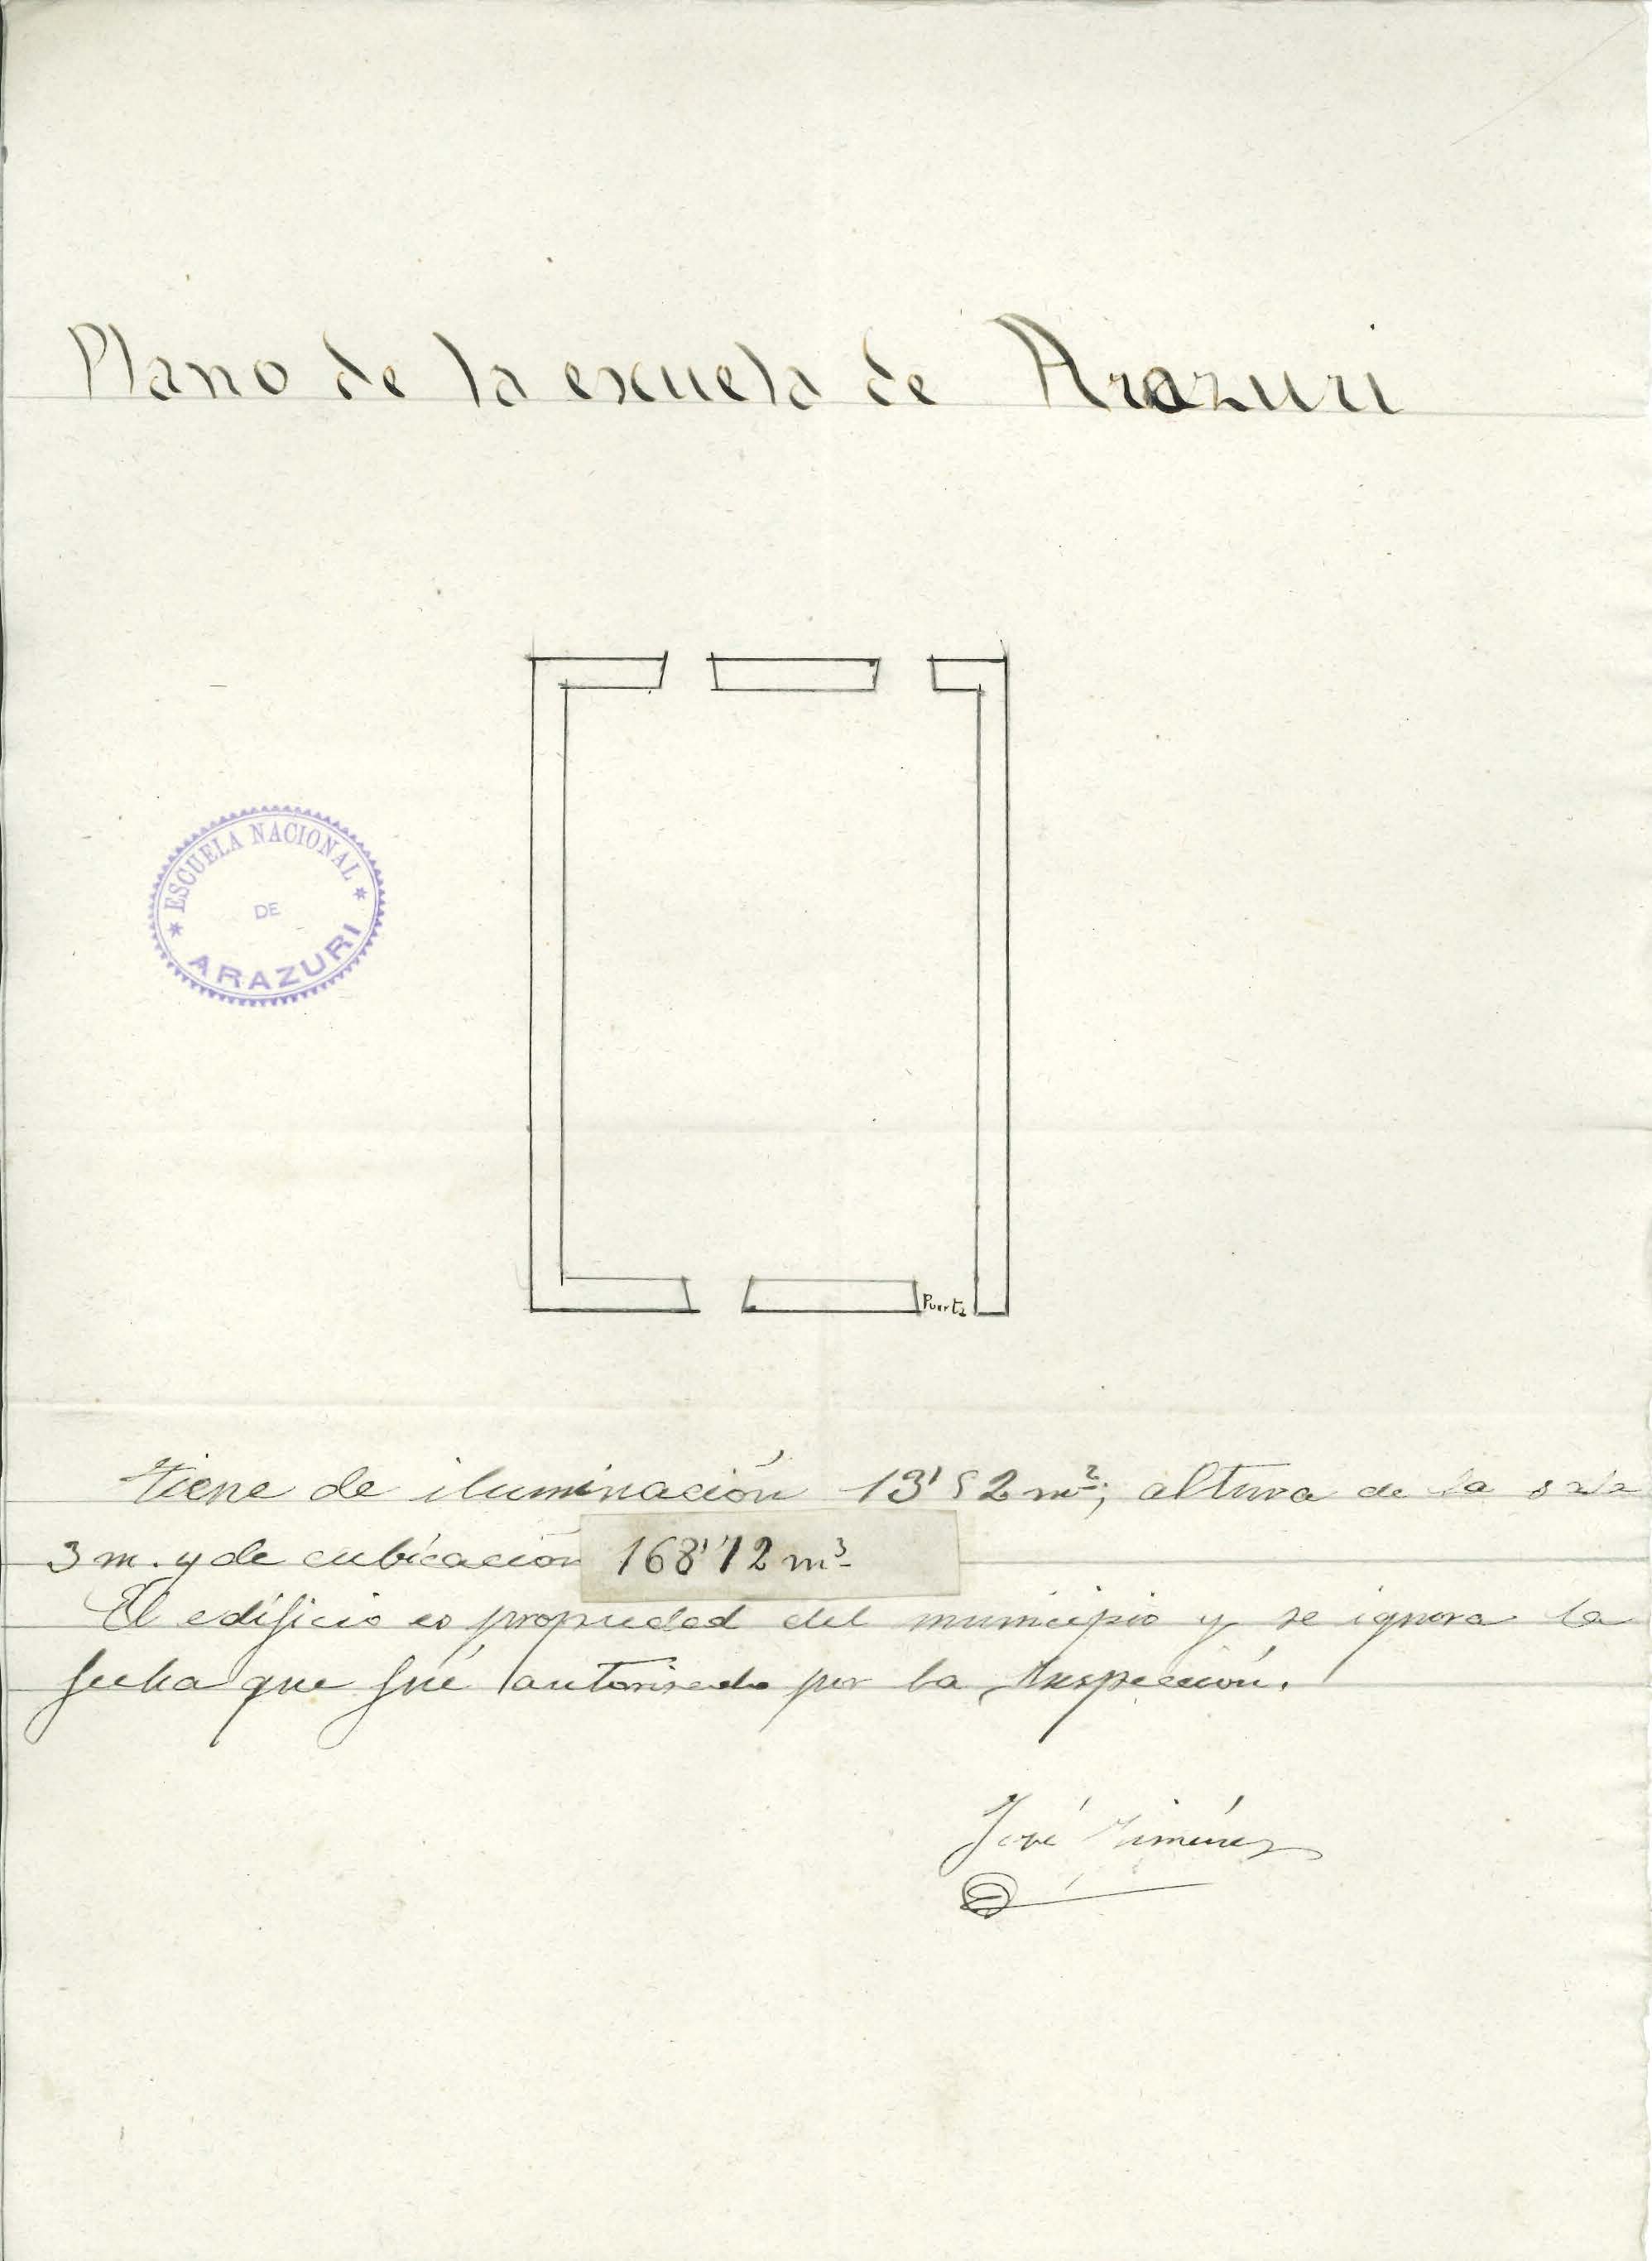 Plano de la escuela de Arazuri
ESCUELA NACIONAL
DE
ARAZURI
Puerta
Tiene de iluminación 13'52 m²; altura de la sala
3 m. y de cubicación 168'72 m³
El edificio es propiedad del municipio y se ignora la
fecha que fué autorizada por la Inspección.
José Jiménez